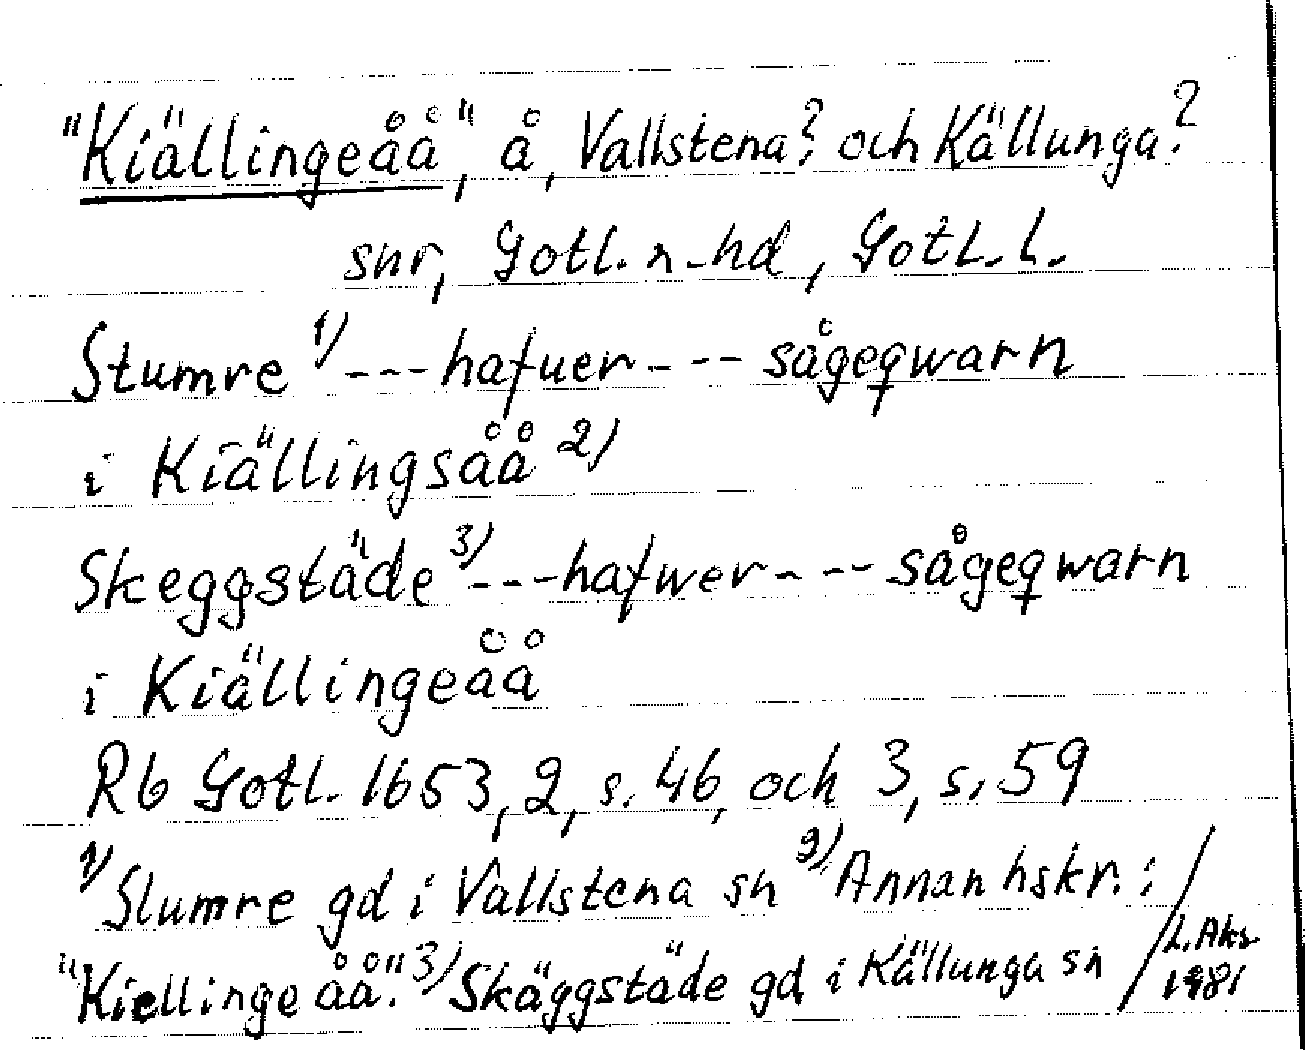 "Kiällingeåå", å, Vallstena? och Källunga?
snr, Gotl. n. hd, Gotl. l.
Stumre 1) --- hafuer --- sågeqwarn
i Kiällingsåå 2)
Skeggstäde 3) --- hafwer --- sågeqwarn
i Kiällingeåå
Rb Gotl. 1653, 2, s. 46, och 3, s. 59
1) Slumre gd i Vallstena sn 2) Annan hskr.:
"Kiellingeåå". 3) Skäggstäde gd i Källunga sn / L. Aks
1981